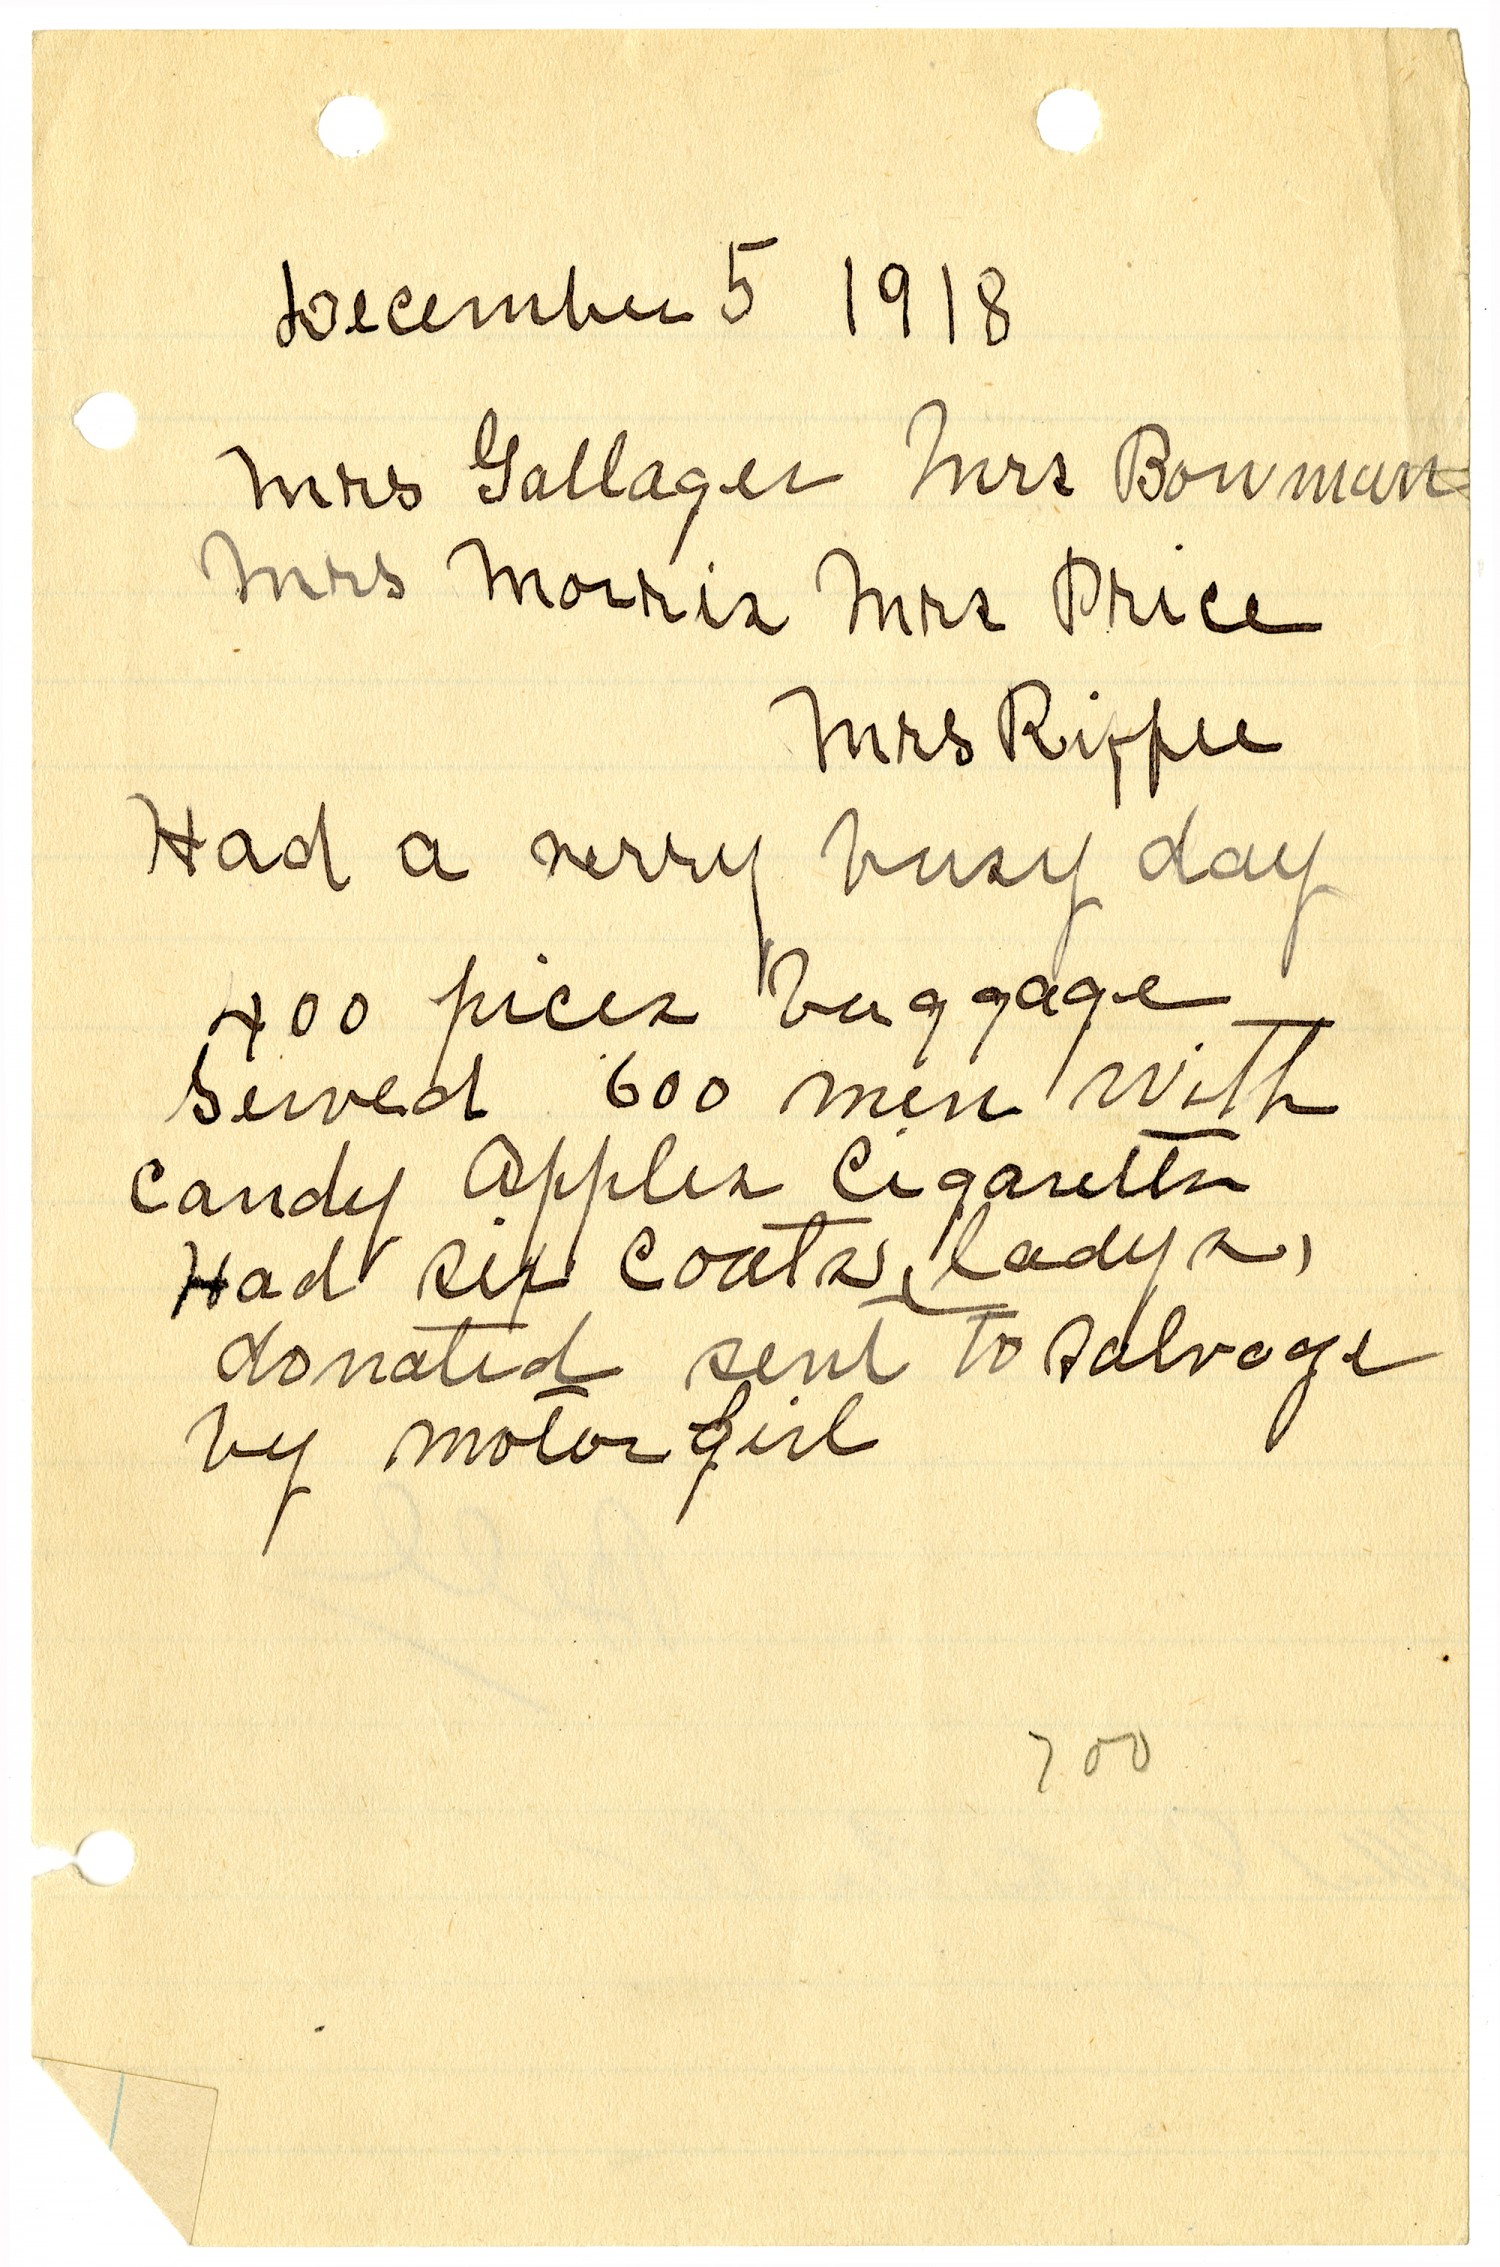 December 5 1918
Mrs Gallager Mrs Bowman
Mrs Morris Mrs Price
Mrs Rippee
Had a verry busy day
400 pices buggage
Served 600 men with
Candy Apples Cigaretts
Had six Coats, ladys,
donated sent to salvage
by motor girl
700